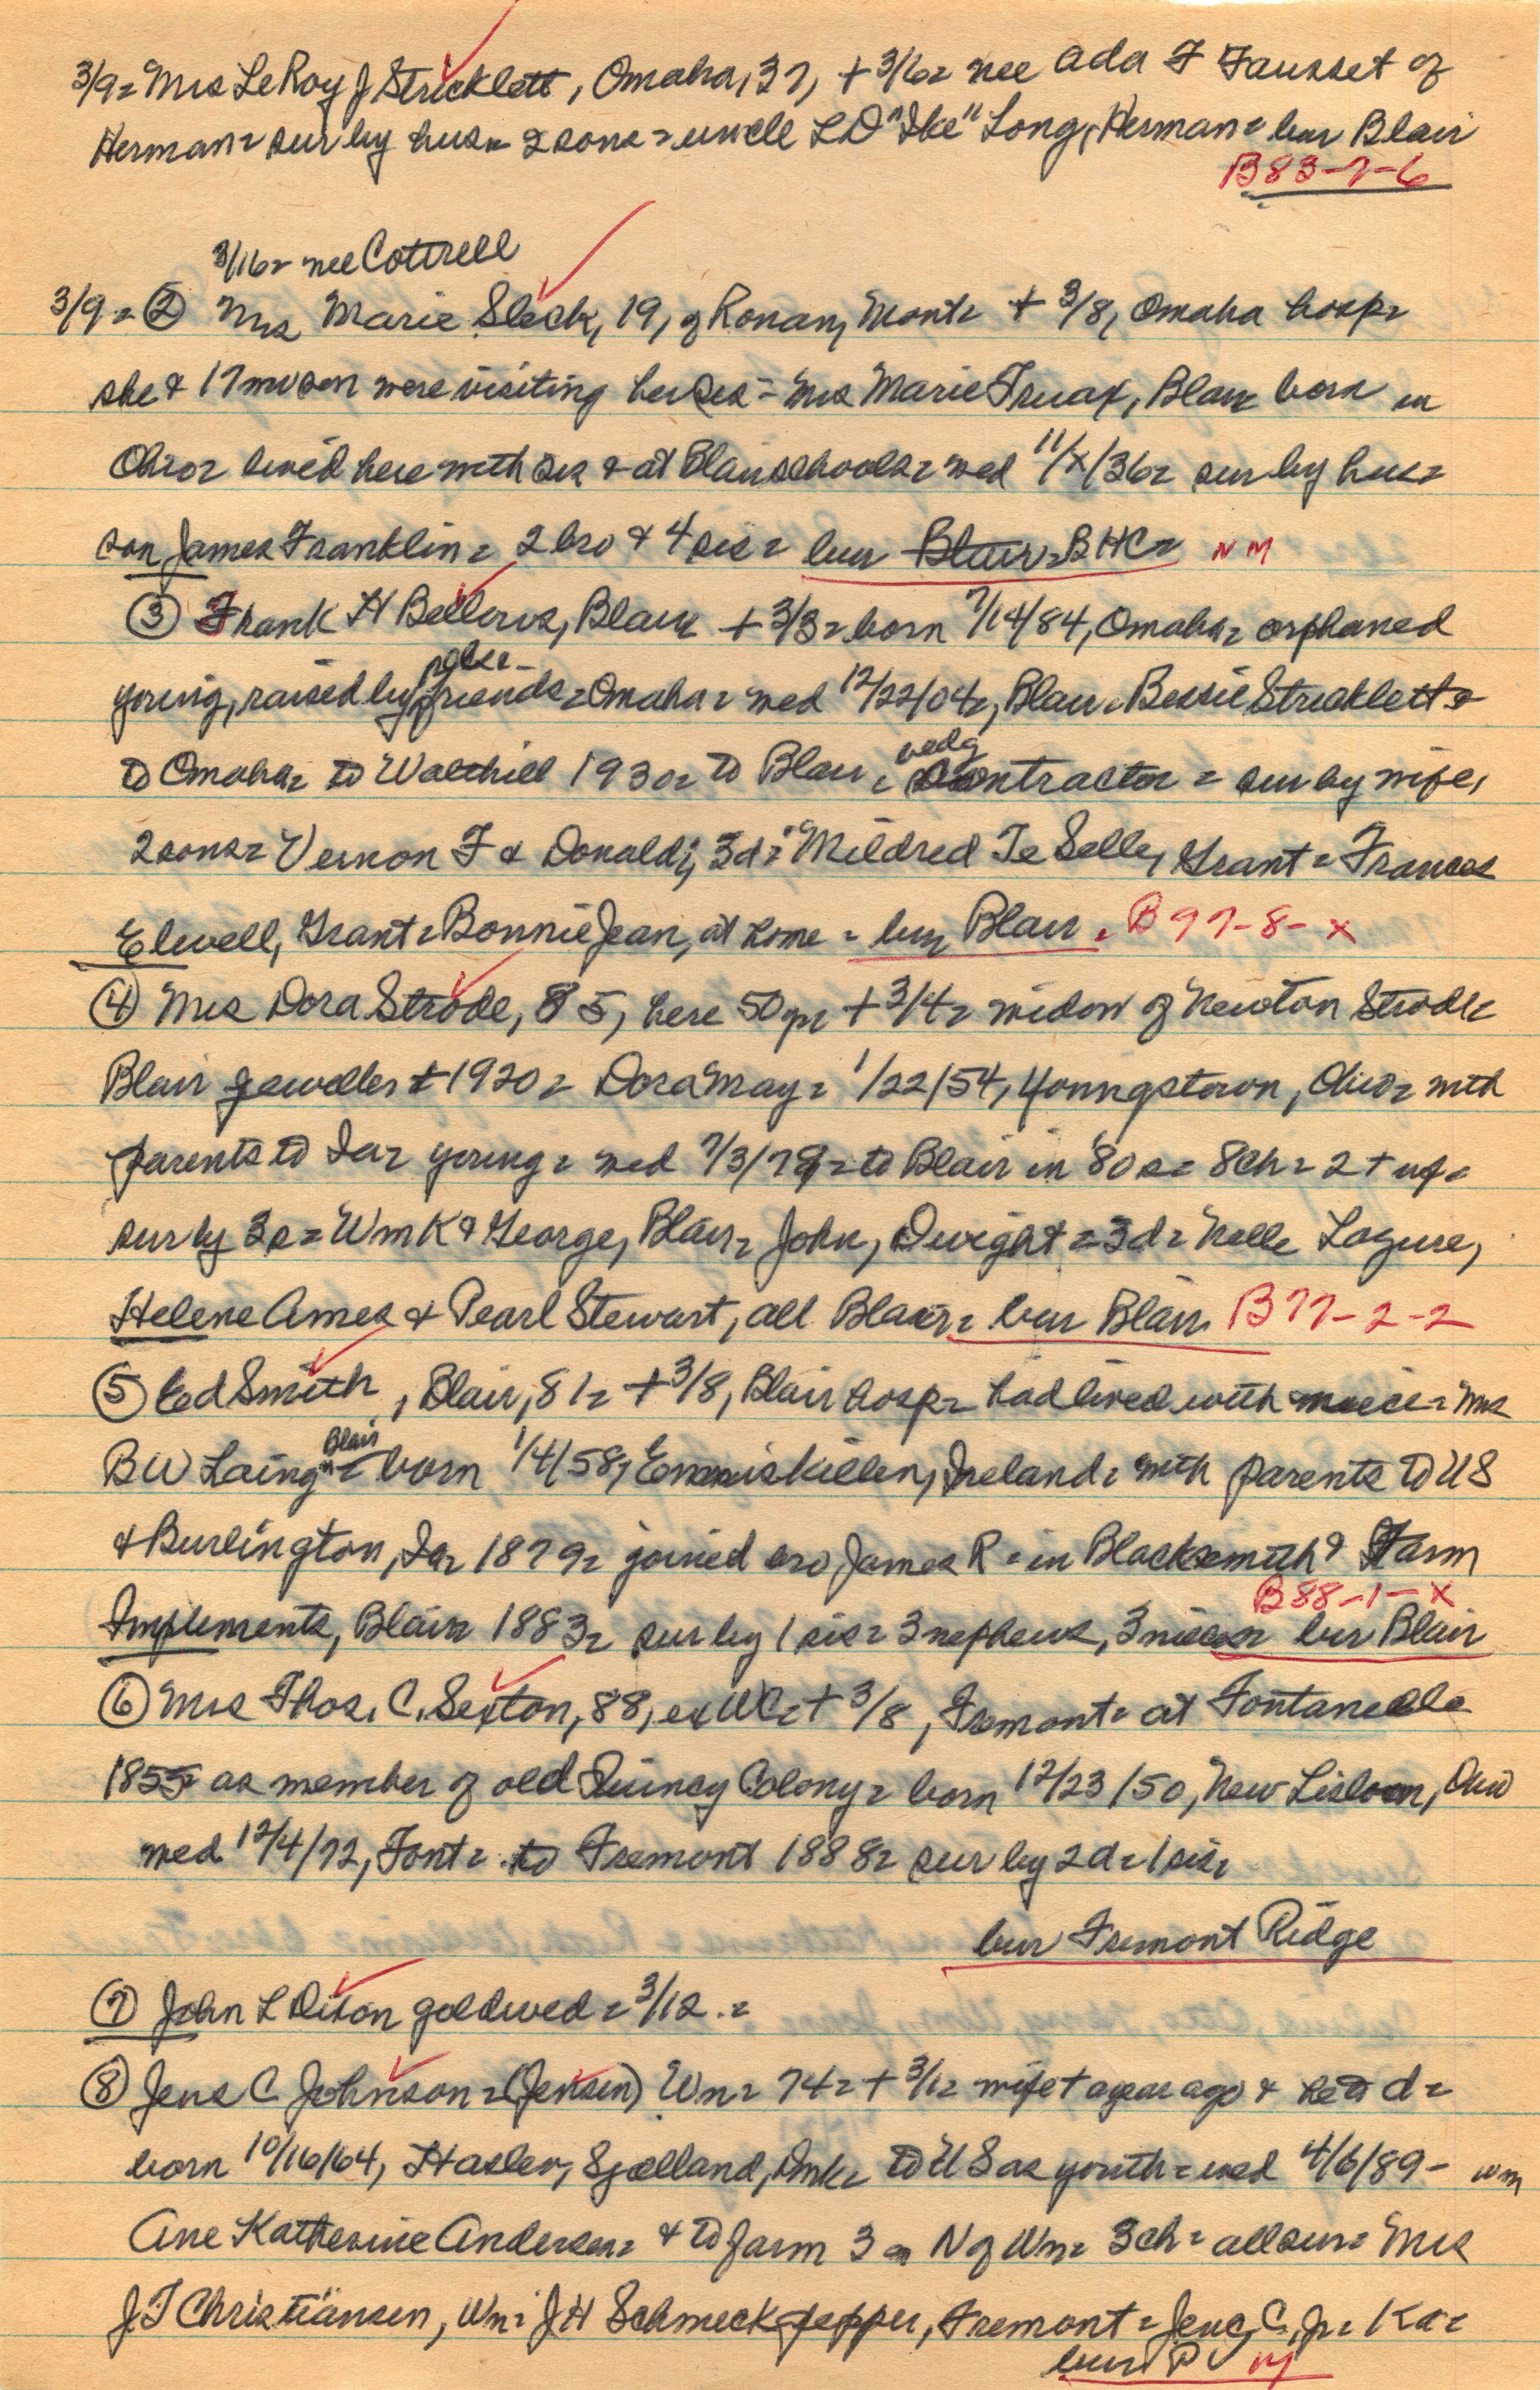 3/9= Mrs LeRoy J Stricklett, Omaha, 37, + 3/6= nee Ada F Fausset of
Herman= sur by hus= 2 sons= uncle L D "Ike" Long, Herman= bur Blair
B83-7-6
3/16= nee Cottrell
3/9= ② Mrs Marie Sleck, 19, of Ronan, Mont= + 3/8, Omaha hosp=
she & 17 mo son were visiting her sis= Mrs Marie Truax, Blair born in
Ohio= lived here with sis & at Blair schools= wed 11/x/36= sur by hus=
son James Franklin= 2 bro & 4 sis= bur Blair= BHC= NM
③ Frank H Bellows, Blair + 3/3= born 7/14/84, Omaha= orphaned
young, raised by friends= Omaha= wed 12/22/04=, Blair= Bessie Stricklett=
to Omaha= to Walthill 1930= to Blair= bedg contractor= sur by wife,
2 sons= Vernon F & Donald; 3d= Mildred Te Selle, Grant= Frances
Elwell, Grant= Bonnie Jean, at home= bur Blair= B97-8-x
④ Mrs Dora Strode, 85, here 50 yr + 3/4= widow of Newton Strode=
Blair jeweller + 1920= Dora May= 1/22/54, Youngstown, Ohio= with
parents to Ia= young= wed 7/3/79= to Blair in '80s= 8ch= 2 + inf=
sur by 3s= Wm K & George, Blair= John, Dwight= 3d= Nelle Lazure,
Helene Ames & Pearl Stewart, all Blair= bur Blair B77-2-2
⑤ Ed Smith, Blair, 81= + 3/8, Blair hosp= had lived with niece= Mrs
B W Laing Blair= born 1/4/58, Enniskillen, Ireland= with parents to US
& Burlington, Ia= 1879= joined bro James R= in Blacksmith & Farm
B88-1-x
Implements, Blair 1883= sur by 1 sis= 3 nephews, 3 nieces= bur Blair
⑥ Mrs Thos. C. Sexton, 88, ex WC= + 3/8, Fremont= at Fontanelle
1855= as member of old Quincy Colony= born 12/23/50, New Lisbon, Ohio
wed 12/4/72, Font= to Fremont 1888= sur by 2d= 1 sis=
bur Fremont Ridge
⑦ John L Dixon gold wed= 3/12.=
⑧ Jens C Johnson= (Jensen) Wn= 74= + 3/1= wife + a year ago & he to d=
born 10/16/64, Haslev, Sjælland, Dmk= to US as youth= wed 4/6/89- wm
Ane Katherine Andersen= & to farm 3 m N of Wn= 3ch= all sur= Mrs
J T Christiansen, Wn= J H Schmeckpepper, Fremont= Jens C, Jr= Ka=
bur P V M